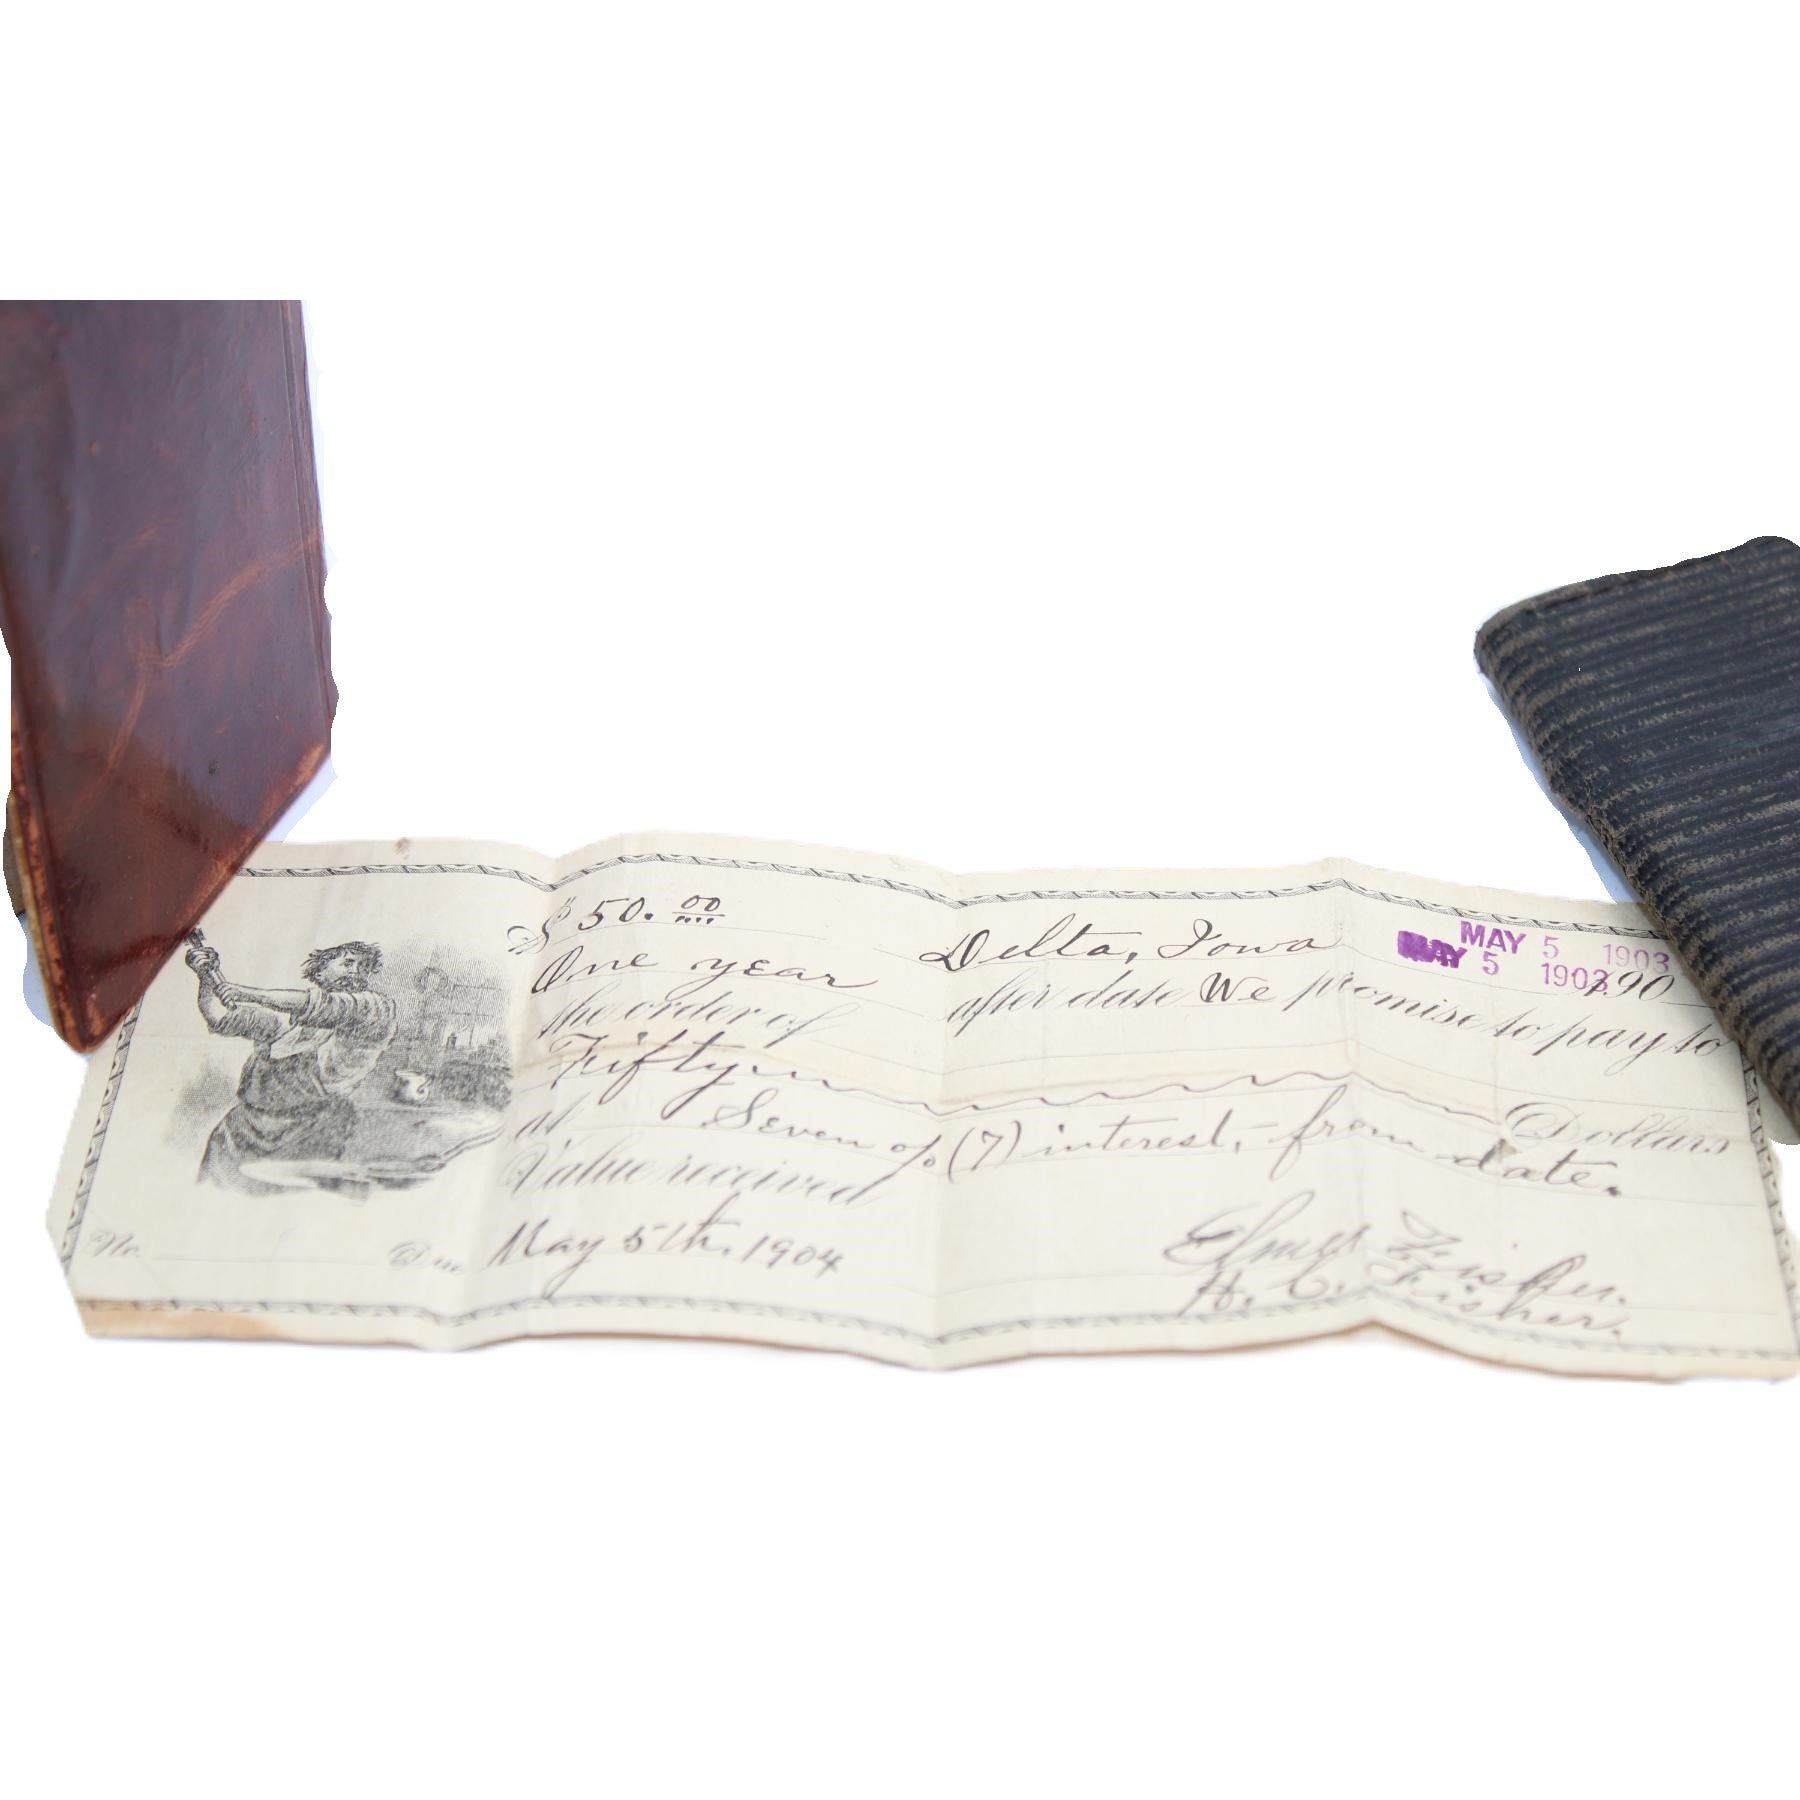 $ 50. 00
Delta, Iowa MAY 5 1903
MAY 5 1903 190
One year after date We promise to pay to
the order of
Fifty Dollars
at Seven % (7) interest, from date.
Value received
No. Due May 5th, 1904
Elmer Fisher.
H. C. Fisher.